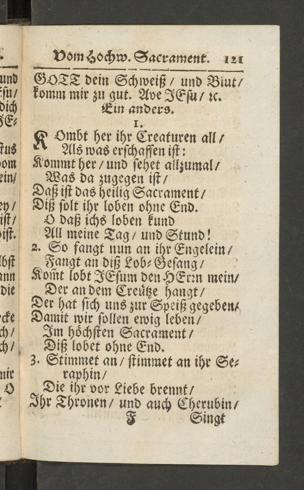 Vom Hochw. Sacrament. 121
GOTT dein Schweiß / und Blut /
komm mir zu gut. Ave JEsu / ꝛc.
Ein anders.
1.
KOmbt her ihr Creaturen all /
Als was erschaffen ist:
Kommet her / und sehet allzumal /
Was da zugegen ist /
Daß ist das heilig Sacrament /
Diß solt ihr loben ohne End.
O daß ichs loben kund
All meine Tag / und Stund!
2. So fangt nun an ihr Engelein /
Fangt an diß Lob-Gesang /
Kom̃t lobt JEsum den HErꝛn mein /
Der an dem Creütze hangt /
Der hat sich uns zur Speiß gegeben /
Damit wir sollen ewig leben /
Im höchsten Sacrament /
Diß lobet ohne End.
3. Stimmet an / stimmet an ihr Se-
raphin /
Die ihr vor Liebe brennt /
Ihr Thronen / und auch Cherubin /
F Singt